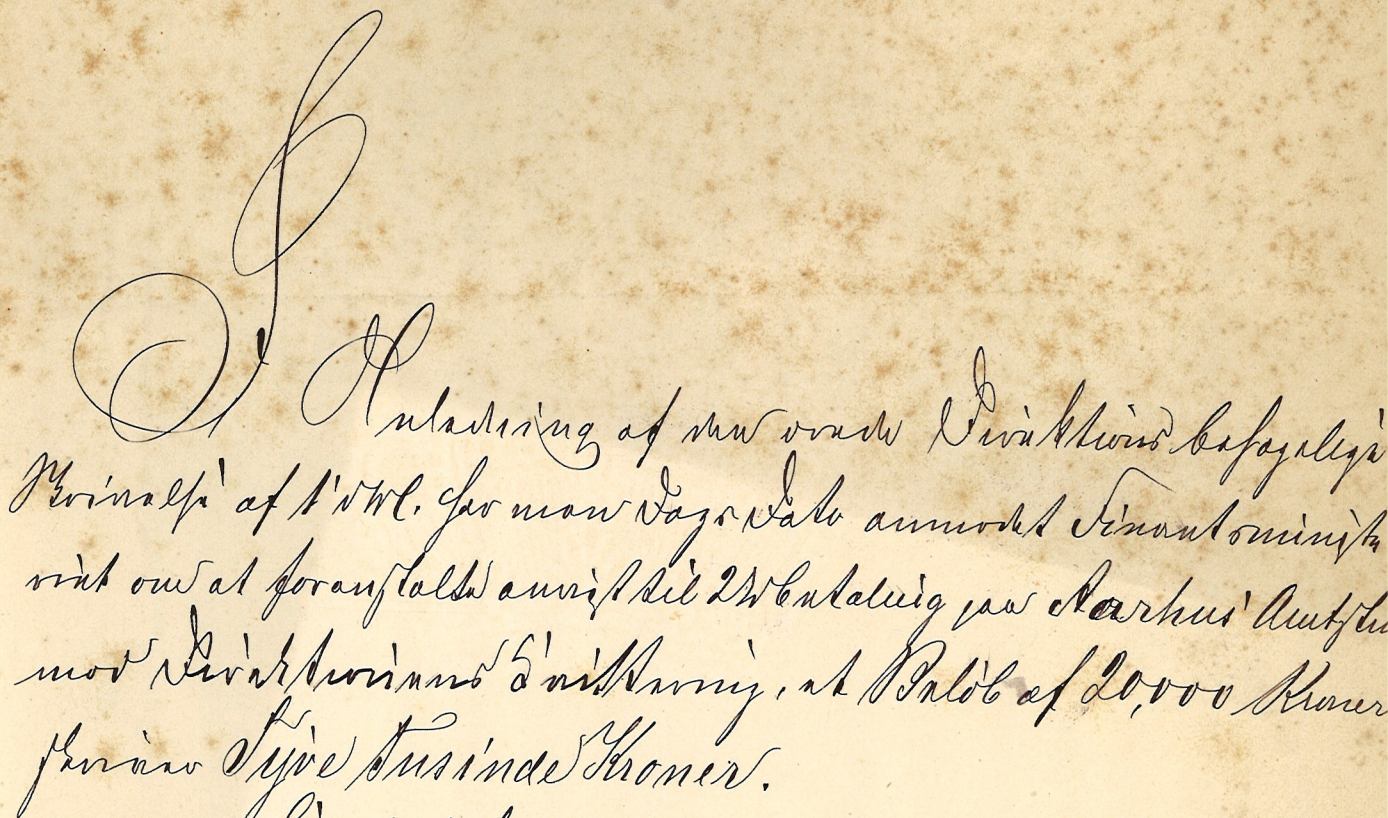 I Anledning af den ærede Direktions behagelige
Skrivelse af 1' dMs. har man Dags Dato anmodet Finantsministe
riet om at foranstalte anvist til Udbetaling paa Aarhus Amtstu
mod Direktionens Qvittering, et Beløb af 20,000 Kroner
skriver Tyve Tusinde Kroner.